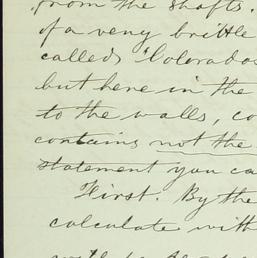 from the shafts.
of a very brittle
called "Colorados
but here in the
to the walls, co
contains not the
statement you ca
First. By the
calculate with